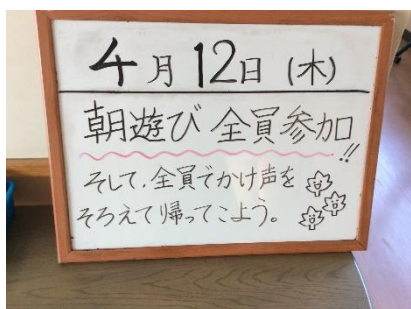 4月12日(木)
朝遊び 全員参加!!
そして、全員でかけ声を
そろえて帰ってこよう。